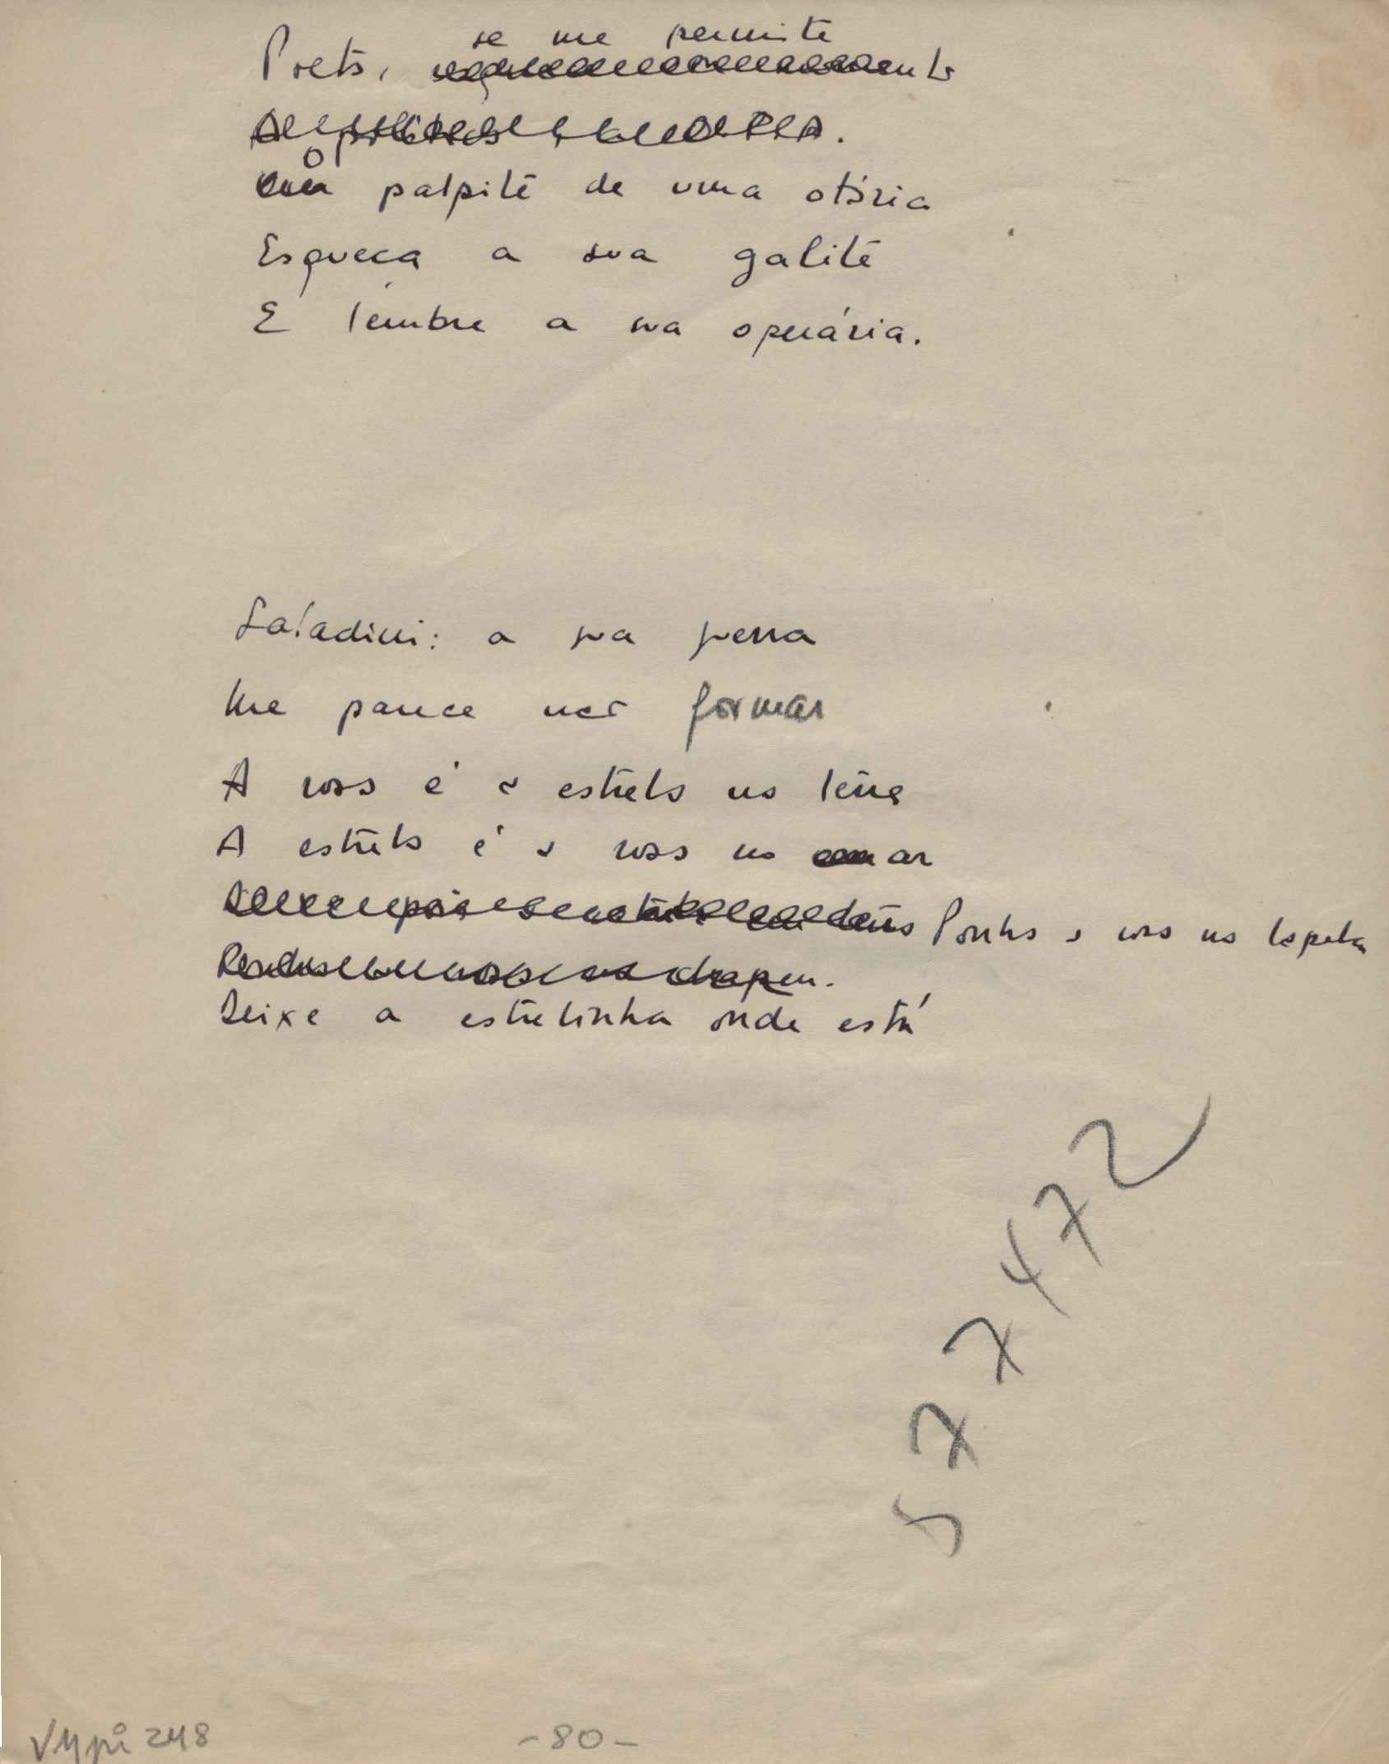 se me permite
Poeta,
O palpite de uma otária
Esqueça a sua galité
E lembre a sua operária.
Saladini: a sua guerra
Me parece formar
A rosa é a estrela na terra
A estrela é a rosa no ar
Ponha a rosa na lapela
Deixe a estrelinha onde está
577472
VMpi 248
-80-